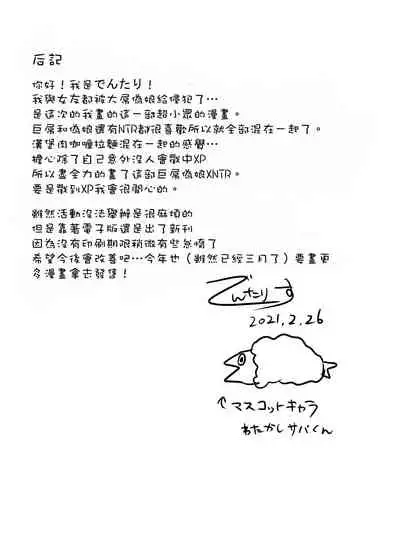 后記
你好！我是でんたり！
我與女友都被大屌偽娘給侵犯了…
是這次的我畫的這一部超小眾的漫畫。
巨屌和偽娘還有NTR都很喜歡所以就全部混在一起了。
漢堡肉咖喱拉麵混在一起的感覺…
擔心除了自己意外沒人會戳中XP
所以盡全力的畫了這部巨屌偽娘XNTR。
要是戳到XP我會很開心的。
雖然活動沒法舉辦是很麻煩的
但是靠著電子版還是出了新刊
因為沒有印刷期限稍微有些怠惰了
希望今後會改善吧…今年也（雖然已經三月了）要畫更
多漫畫拿去發售！
でんたりす
2021.2.26
↑マスコットキャラ
わたかしサバくん